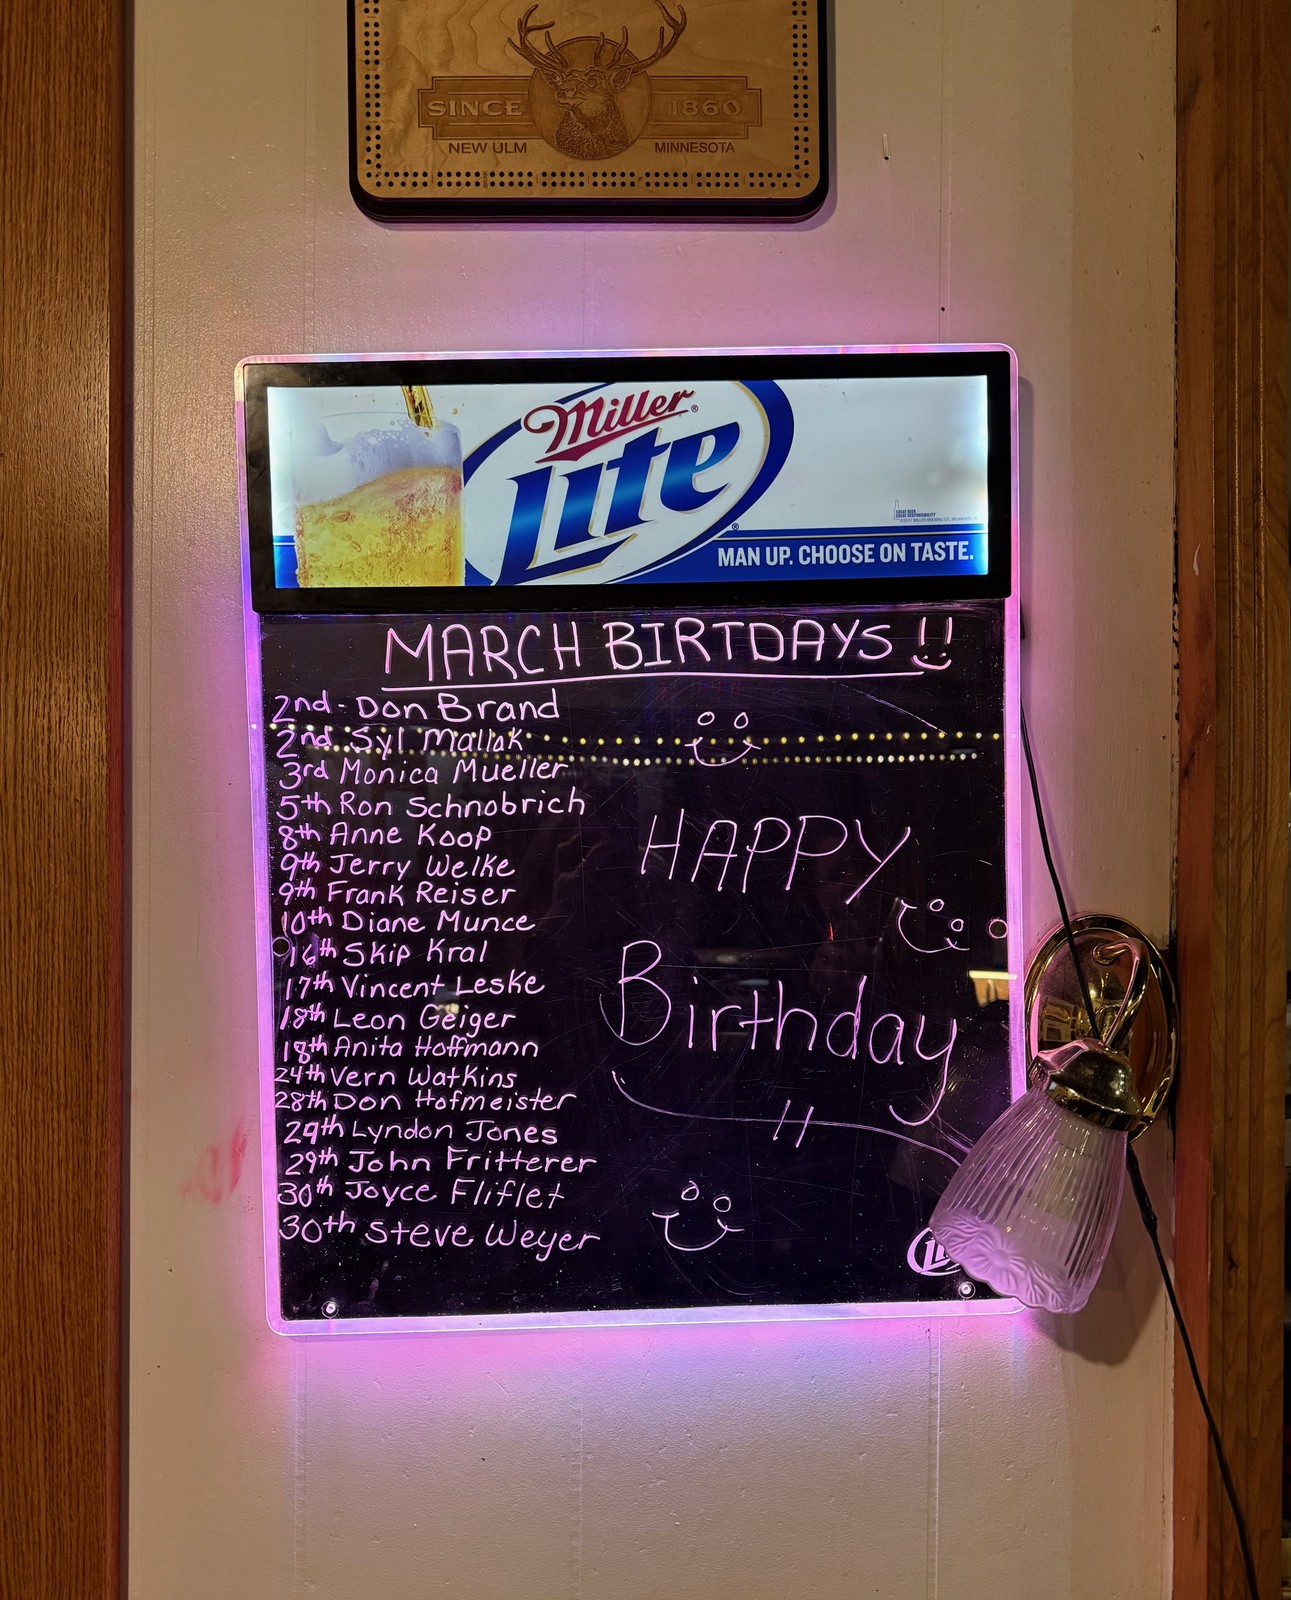 SINCE 1860
NEW ULM MINNESOTA
Miller
Lite
GREAT BEER
GREAT RESPONSIBILITY
MAN UP. CHOOSE ON TASTE.
MARCH BIRTDAYS !!
2nd - Don Brand
2nd Syl Mallak
3rd Monica Mueller
5th Ron Schnobrich
8th Anne Koop
9th Jerry Welke
9th Frank Reiser
10th Diane Munce
16th Skip Kral
17th Vincent Leske
18th Leon Geiger
18th Anita Hoffmann
24th Vern Watkins
28th Don Hofmeister
29th Lyndon Jones
29th John Fritterer
30th Joyce Fliflet
30th Steve Weyer
HAPPY
Birthday